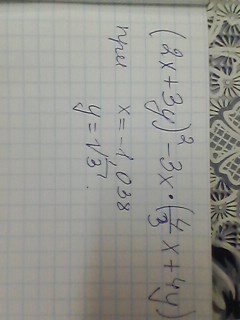 (2x+3y)²-3x·(4/3x+4y)
при x=-1,038
y=√3